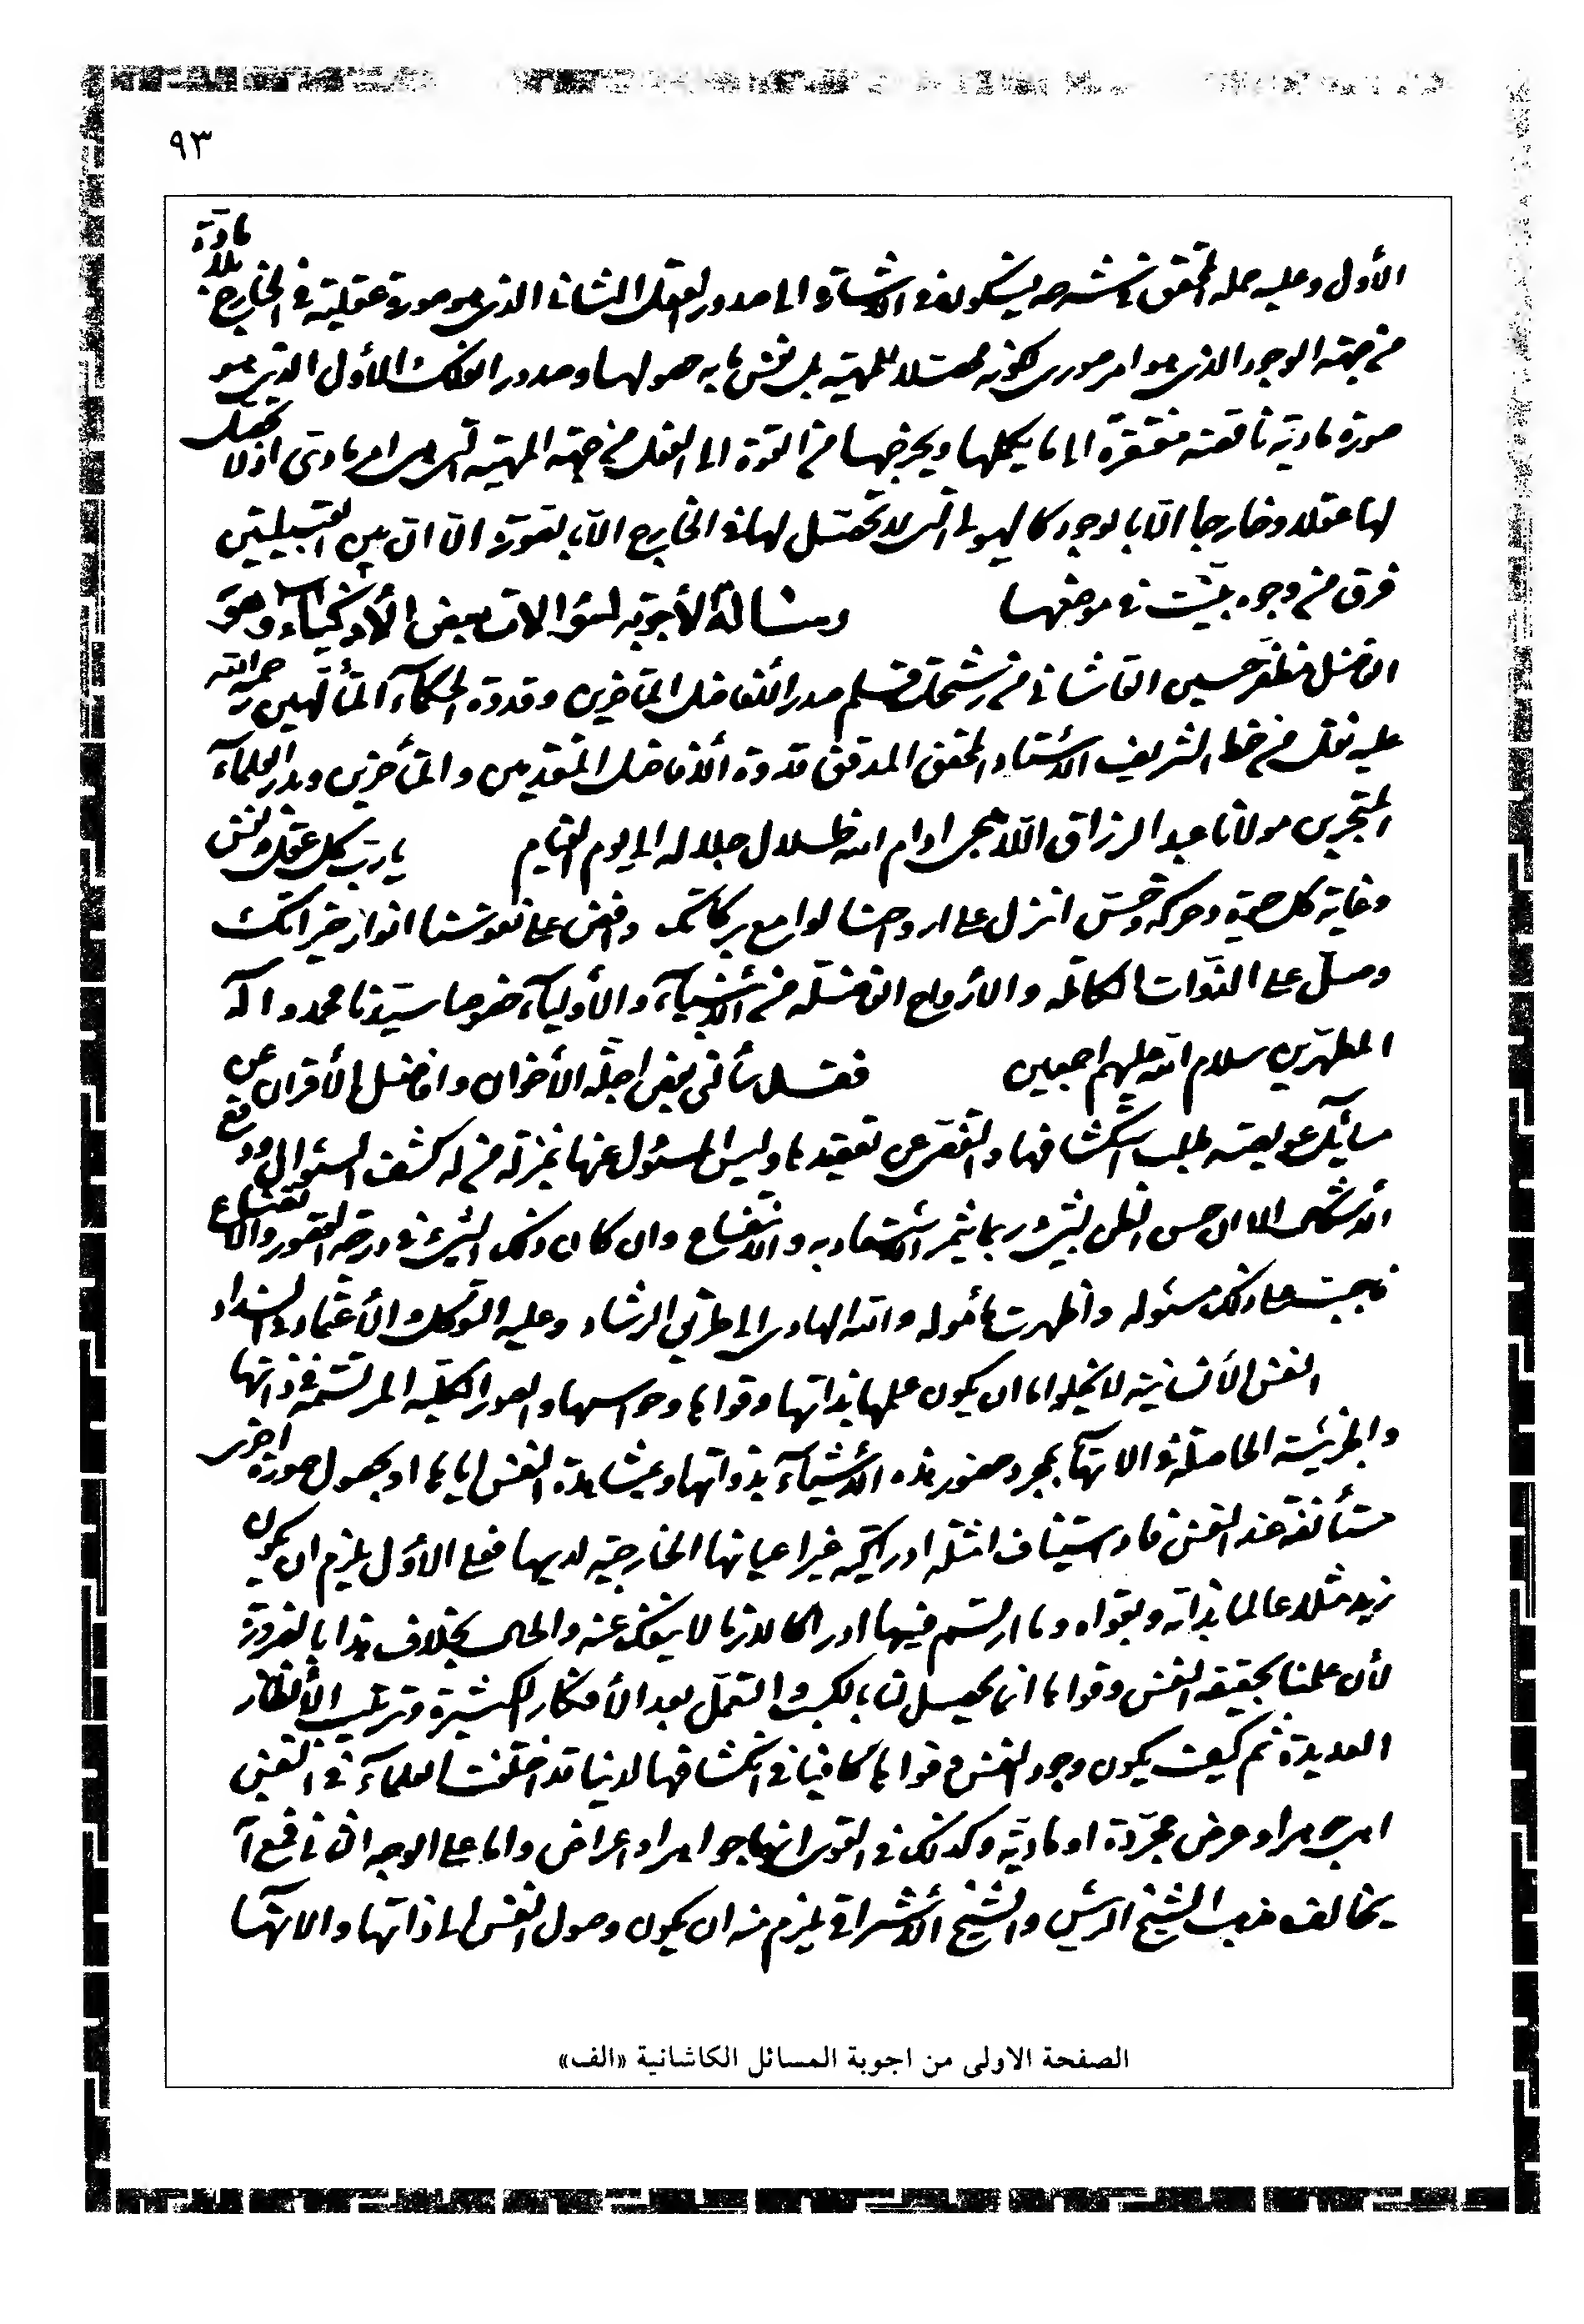 ٩٣
الأول وعليه حمله المحقق في شرحه ليكون في الاشارة الى صدور العقل الثاني الذي هو صورة عقلية في الخارج بلا مادة
من جهة الوجود الذي هو امر صوري لكونه محصلا للمهية بل نفس ما به حصولها وصدور الفلك الأول الذي هو
صورة مادية ناقصة مفتقرة الى ما يكملها ويخرجها من القوة الى الفعل من جهة المهية التي هي امر مادي اذ لا تحصل
لها عقلا وخارجا الا بالوجود كالهيولى التي لا تحصل لها في الخارج الا بالصورة الا ان بين القبيلتين
فرق من وجوه بينت في موضعها رسالة الأجوبة لسؤالات بعض الأذكياء وهو
الفاضل مظفر حسين القاشاني من رشحات قلم صدر الأفاضل المتأخرين وقدوة الحكماء المتألهين رحمة الله
عليه نقل من خط الشريف الأستاد المحقق المدقق قدوة الأفاضل المتقدمين والمتأخرين وبدر العلماء
المتبحرين مولانا عبد الرزاق اللاهجي ادام الله ظلال جلاله الى يوم القيام يا رب كل عقل ونفس
وغاية كل حيوة وحركة وحس انزل على ارواحنا لوامع بركاتك وافض على نفوسنا انوار خيراتك
وصل على الذوات الكاملة والأرواح الفاضلة من الأنبياء والأولياء خصوصا سيدنا محمد وآله
المطهرين سلام الله عليهم اجمعين فقد سألني بعض اجلة الأخوان وافاضل الأقران عن
مسائل عويصة طلب استكشافها والتفصي عن تعقيدها وليس المسئول عنها بمنزلة من له كشف السئوال ودفع
الأشكال الا ان حسن الظن بشيء ربما يثمر الاستعاد به والانتفاع وان كان ذلك الشيء في درجة القصور والاتضاع
فاجبت على ذلك مسئوله واظهرت مأموله والله الهادي الى طريق الرشاد وعليه التوكل والأعتماد في السداد
النفس الأنسانية لا يخلوا اما ان يكون علمها بذاتها وقواها وحواسها والصور الكلية المرتسمة في ذاتها
والجزئية الحاصلة في الاتها بمجرد حضور هذه الأشياء بذواتها وبمشاهدة النفس اياها او بحصول صورة اخرى
مستأنفة عند النفس فاد استيناف امثلة ادراكية غير اعيانها الخارجية لديها فعلى الأول يلزم ان يكون
زيد مثلا عالما بذاته وبقواه وما ارتسم فيها ادراكا لازما لا ينفك عنه والحال بخلاف هذا بالضرورة
لأن علمنا بحقيقة النفس وقواها انما يحصل لنا بالكسب والتعمل بعد الأفكار الكثيرة وترتيب الأنظار
العديدة ثم كيف يكون وجود النفس وقواها كافيا في انكشافها لدينا قد اختلفت العلماء في النفس
اهي جوهر او عرض مجردة او مادية وكذلك في القوى انها جواهر او اعراض واما على الوجه الثاني فمع انه
يخالف مذهب الشيخ الرئيس والشيخ الأشراقي يلزم منه ان يكون وصول النفس الى ذاتها والاتها
الصفحة الاولى من اجوبة المسائل الكاشانية «الف»